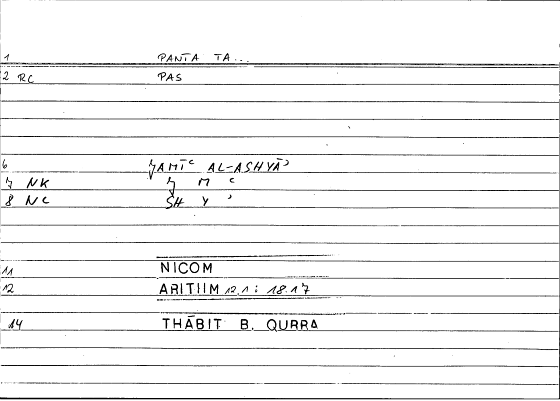 1 PANTA TA...
2 RC PAS
6 ǦAMĪʿ AL-ASHYĀʾ
7 NK Ǧ M ʿ
8 NC SH Y ʾ
11 NICOM
12 ARITIIM 12.1 : 18.17
14 THĀBIT B. QURRA